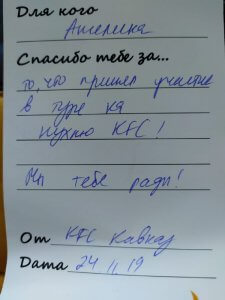 Для кого
Анжелика
Спасибо тебе за...
то, что принял участие
в туре на
кухню KFC!
Мы тебе рады!
От KFC Кавказ
Дата 24 11 19